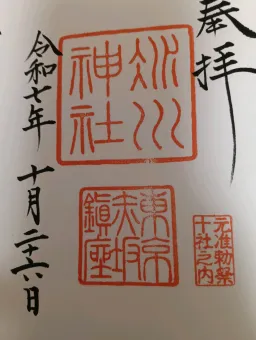 奉拝
氷川
神社
東京
赤坂
鎮座
元准勅祭
十社之内
令和七年 十月二十六日